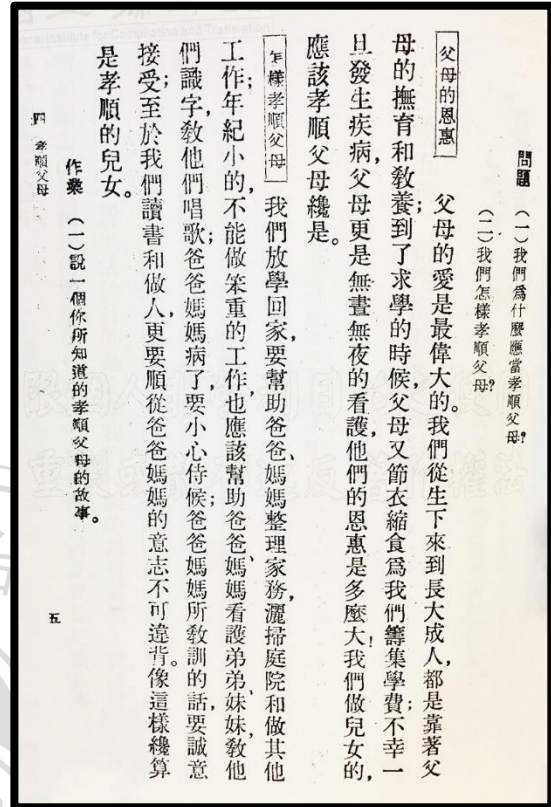 問題　(一)我們爲什麼應當孝順父母?
(二)我們怎樣孝順父母?
父母的恩惠　父母的愛是最偉大的。我們從生下來到長大成人，都是靠著父
母的撫育和敎養；到了求學的時候，父母又節衣縮食爲我們籌集學費；不幸一
旦發生疾病，父母更是無晝無夜的看護，他們的恩惠是多麼大！我們做兒女的，
應該孝順父母纔是。
怎樣孝順父母　我們放學回家，要幫助爸爸、媽媽整理家務，灑掃庭院和做其他
工作；年紀小的，不能做笨重的工作，也應該幫助爸爸、媽媽看護弟弟、妹妹，敎他
們識字，敎他們唱歌；爸爸媽媽病了，要小心侍候；爸爸媽媽所敎訓的話，要誠意
接受；至於我們讀書和做人，更要順從爸爸媽媽的意志不可違背。像這樣纔算
是孝順的兒女。
作業　(一)說一個你所知道的孝順父母的故事。
四　孝順父母
五